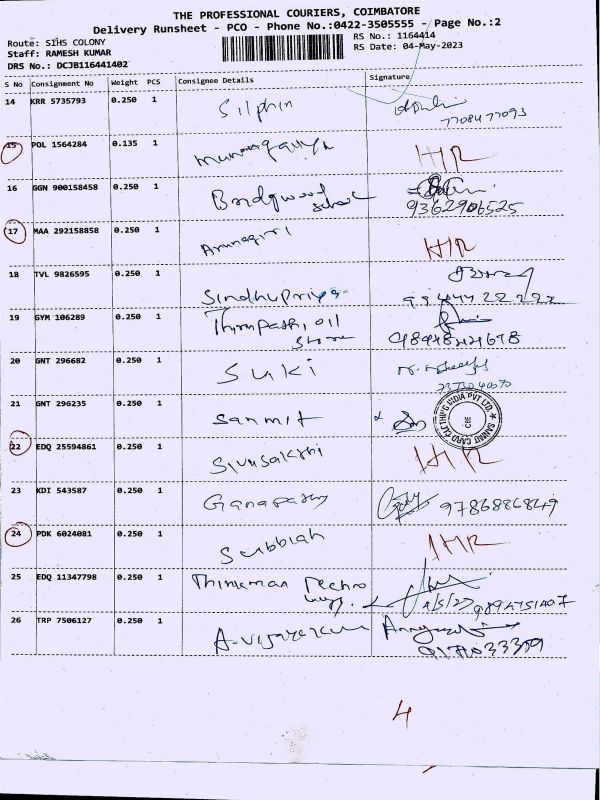 THE PROFESSIONAL COURIERS, COIMBATORE
Delivery Runsheet - PCO - Phone No.:0422-3505555 - Page No.:2
Route: SIHS COLONY
Staff: RAMESH KUMAR
DRS No.: DCJB116441402
RS No.: 1164414
RS Date: 04-May-2023
S No Consignment No Weight PCS Consignee Details Signature
14 KRR 5735793 0.250 1 Silphin
7708477093
15 POL 1564284 0.135 1 HR
16 GGN 900158458 0.250 1 Bridgwood
School 9362906525
17 MAA 292158858 0.250 1 Arunagiri HR
18 TVL 9826595 0.250 1
Sindhupriya
19 GYM 106289 0.250 1 Thirupathi oil
Store
20 GNT 296682 0.250 1 Suki
21 GNT 296235 0.250 1 Sanmit
22 EDQ 25594861 0.250 1 Sivasakthi HR
23 KDI 543587 0.250 1 Ganapathy
24 PDK 6024081 0.250 1 Subbiah HR
25 EDQ 11347798 0.250 1 Thinkman Techno
26 TRP 7506127 0.250 1 A. Vijayakumar
4